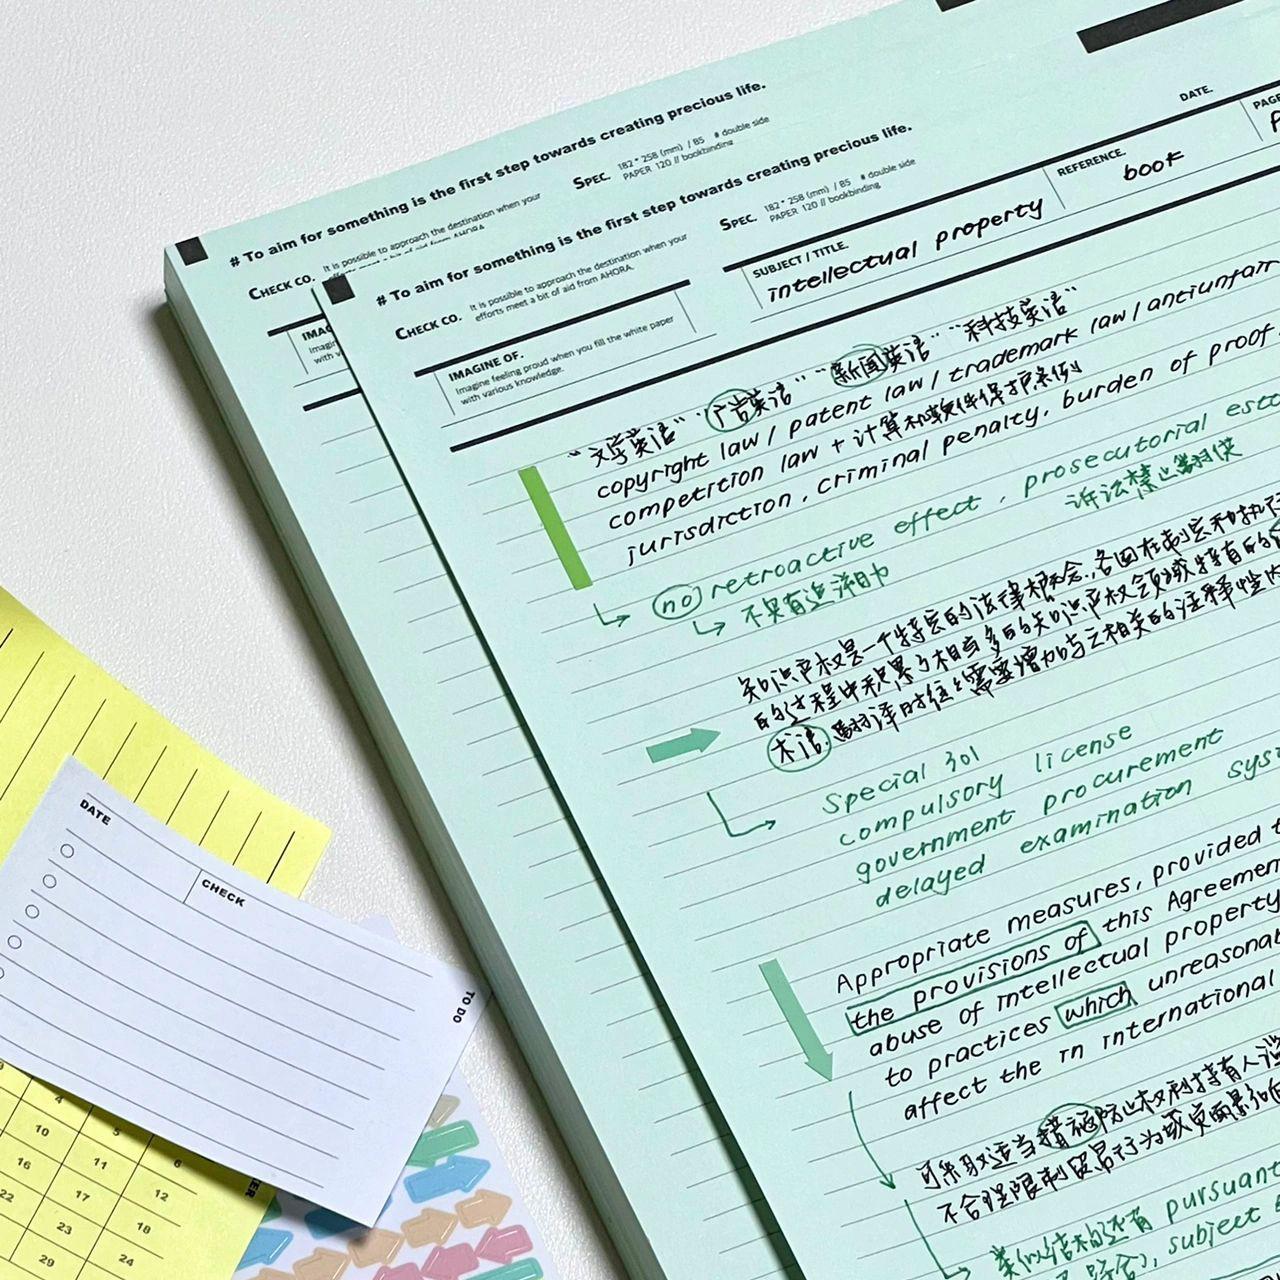 # To aim for something is the first step towards creating precious life.
CHECK CO. It is possible to approach the destination when your
efforts meet a bit of aid from AHORA.
SPEC. 182 * 258 (mm) / B5 # double side
PAPER 120 // bookbinding
IMAG
Imagin
with v
# To aim for something is the first step towards creating precious life.
CHECK CO. It is possible to approach the destination when your
efforts meet a bit of aid from AHORA.
SPEC. 182 * 258 (mm) / B5 # double side
PAPER 120 // bookbinding
DATE.
PAGE
IMAGINE OF.
Imagine feeling proud when you fill the white paper
with various knowledge.
SUBJECT / TITLE.
intellectual property
REFERENCE.
book
"文学英语" "广告英语" "新闻英语" "科技英语"
copyright law / patent law / trademark law / antiunfair
competition law + 计算机软件保护条例
jurisdiction, criminal penalty, burden of proof
no retroactive effect, prosecutorial esto
不具有追溯力
诉讼禁止翻供
知识产权是一个特定的法律概念，各国在制定和执行
的过程中积累了相当多的知识产权领域特有的
术语，翻译时往往需要增加与之相关的注释性内
Special 301
compulsory license
government procurement
delayed examination syst
Appropriate measures, provided t
the provisions of this Agreemen
abuse of intellectual property
to practices which unreasonab
affect the in international
可采取适当措施防止权利持有人
不合理限制贸易行为或负面影响
类似结构还有 pursuant
subject
DATE
CHECK
TO DO
4
10 5
16 11 6
22 17 12
23 18
29 24